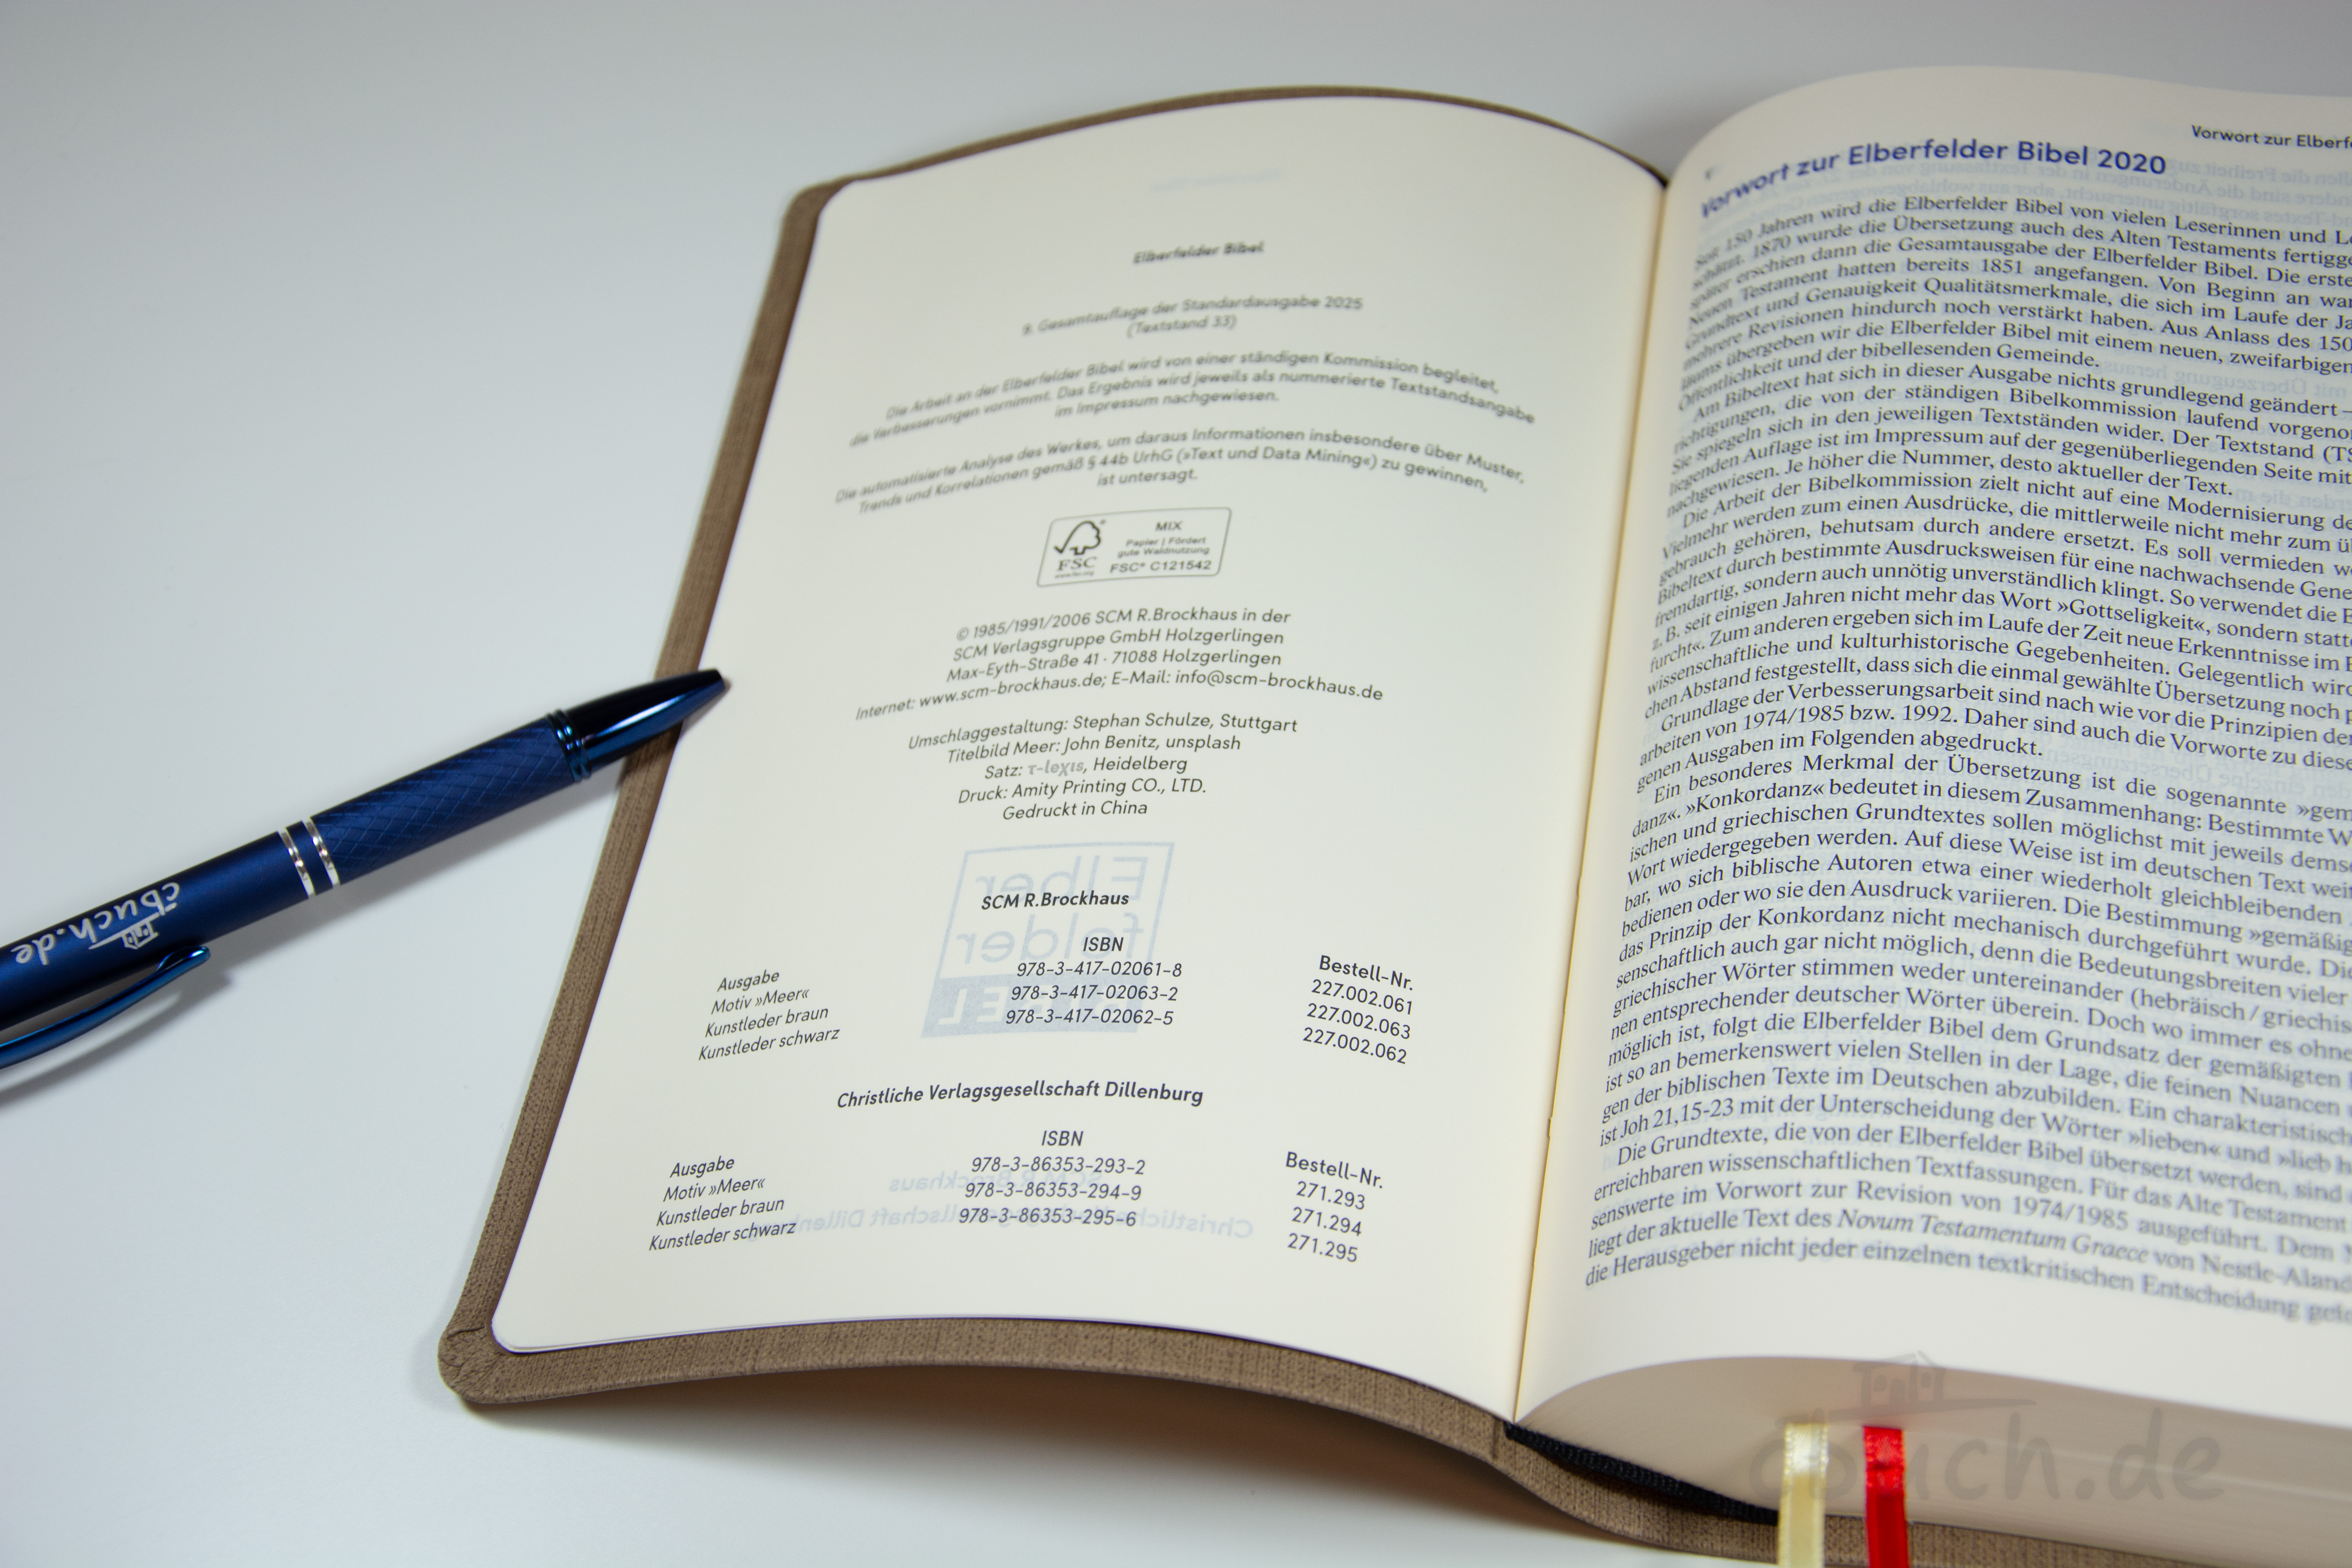 Elberfelder Bibel
9. Gesamtauflage der Standardausgabe 2025
(Textstand 33)
Die Arbeit an der Elberfelder Bibel wird von einer ständigen Kommission begleitet,
die Verbesserungen vornimmt. Das Ergebnis wird jeweils als nummerierte Textstandsangabe
im Impressum nachgewiesen.
Die automatisierte Analyse des Werkes, um daraus Informationen insbesondere über Muster,
Trends und Korrelationen gemäß § 44b UrhG (»Text und Data Mining«) zu gewinnen,
ist untersagt.
FSC
www.fsc.org
MIX
Papier | Fördert
gute Waldnutzung
FSC® C121542
© 1985/1991/2006 SCM R.Brockhaus in der
SCM Verlagsgruppe GmbH Holzgerlingen
Max-Eyth-Straße 41 · 71088 Holzgerlingen
Internet: www.scm-brockhaus.de; E-Mail: info@scm-brockhaus.de
Umschlaggestaltung: Stephan Schulze, Stuttgart
Titelbild Meer: John Benitz, unsplash
Satz: τ-lexis, Heidelberg
Druck: Amity Printing CO., LTD.
Gedruckt in China
SCM R.Brockhaus
Ausgabe ISBN Bestell-Nr.
Motiv »Meer« 978-3-417-02061-8 227.002.061
Kunstleder braun 978-3-417-02063-2 227.002.063
Kunstleder schwarz 978-3-417-02062-5 227.002.062
Christliche Verlagsgesellschaft Dillenburg
Ausgabe ISBN Bestell-Nr.
Motiv »Meer« 978-3-86353-293-2 271.293
Kunstleder braun 978-3-86353-294-9 271.294
Kunstleder schwarz 978-3-86353-295-6 271.295
Vorwort zur
Vorwort zur Elberfelder Bibel 2020
Seit 150 Jahren wird die Elberfelder Bibel von vielen Leserinnen und
schätzt. 1870 wurde die Übersetzung auch des Alten Testaments
später erschien dann die Gesamtausgabe der Elberfelder Bibel. Die
Neuen Testament hatten bereits 1851 angefangen. Von Beginn an
Grundtext und Genauigkeit Qualitätsmerkmale, die sich im Laufe der
mehrere Revisionen hindurch noch verstärkt haben. Aus Anlass des
läums übergeben wir die Elberfelder Bibel mit einem neuen, zweifarbigen
Öffentlichkeit und der bibellesenden Gemeinde.
Am Bibeltext hat sich in dieser Ausgabe nichts grundlegend geändert –
richtigungen, die von der ständigen Bibelkommission laufend
Sie spiegeln sich in den jeweiligen Textständen wider. Der Textstand
liegenden Auflage ist im Impressum auf der gegenüberliegenden Seite mit
nachgewiesen. Je höher die Nummer, desto aktueller der Text.
Die Arbeit der Bibelkommission zielt nicht auf eine Modernisierung
Vielmehr werden zum einen Ausdrücke, die mittlerweile nicht mehr zum
gebrauch gehören, behutsam durch andere ersetzt. Es soll vermieden
Bibeltext durch bestimmte Ausdrucksweisen für eine nachwachsende
fremdartig, sondern auch unnötig unverständlich klingt. So verwendet die
z. B. seit einigen Jahren nicht mehr das Wort »Gottseligkeit«, sondern
furcht«. Zum anderen ergeben sich im Laufe der Zeit neue Erkenntnisse im
wissenschaftliche und kulturhistorische Gegebenheiten. Gelegentlich
chen Abstand festgestellt, dass sich die einmal gewählte Übersetzung noch
Grundlage der Verbesserungsarbeit sind nach wie vor die Prinzipien
arbeiten von 1974/1985 bzw. 1992. Daher sind auch die Vorworte zu
genen Ausgaben im Folgenden abgedruckt.
Ein besonderes Merkmal der Übersetzung ist die sogenannte
danz«. »Konkordanz« bedeutet in diesem Zusammenhang: Bestimmte
ischen und griechischen Grundtextes sollen möglichst mit jeweils
Wort wiedergegeben werden. Auf diese Weise ist im deutschen Text
bar, wo sich biblische Autoren etwa einer wiederholt gleichbleibenden
bedienen oder wo sie den Ausdruck variieren. Die Bestimmung
das Prinzip der Konkordanz nicht mechanisch durchgeführt wurde.
senschaftlich auch gar nicht möglich, denn die Bedeutungsbreiten vieler
griechischer Wörter stimmen weder untereinander
nen entsprechender deutscher Wörter überein. Doch wo immer es ohne
möglich ist, folgt die Elberfelder Bibel dem Grundsatz der gemäßigten
ist so an bemerkenswert vielen Stellen in der Lage, die feinen Nuancen
gen der biblischen Texte im Deutschen abzubilden. Ein
ist Joh 21,15-23 mit der Unterscheidung der Wörter »lieben« und »lieb
Die Grundtexte, die von der Elberfelder Bibel übersetzt werden, sind
erreichbaren wissenschaftlichen Textfassungen. Für das Alte Testament
senswerte im Vorwort zur Revision von 1974/1985 ausgeführt. Dem
liegt der aktuelle Text des Novum Testamentum Graece von Nestle-Aland
die Herausgeber nicht jeder einzelnen textkritischen Entscheidung
cbuch.de
cbuch.de